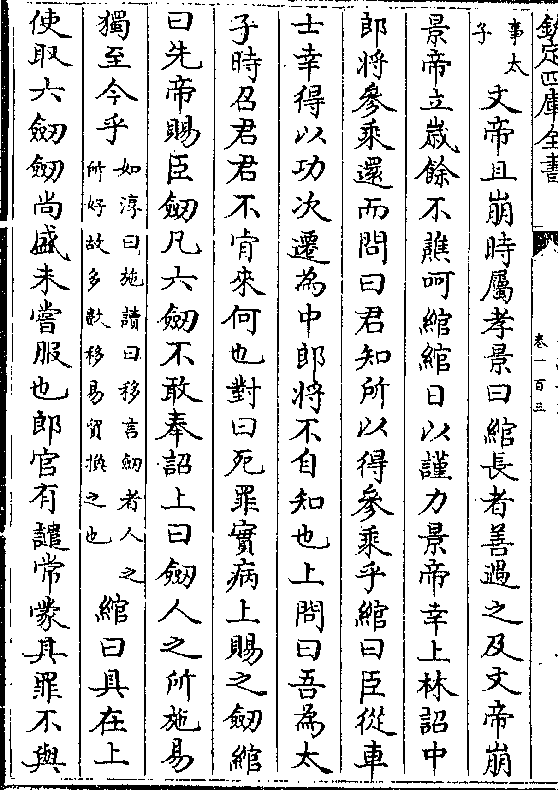 欽定四庫全書
卷一百三
事太
子
文帝且崩時屬孝景曰綰長者善遇之及文帝崩
景帝立嵗餘不譙呵綰綰日以謹力景帝幸上林詔中
郎將參乗還而問曰君知所以得參乗乎綰曰臣從車
士幸得以功次遷為中郎將不自知也上問曰吾為太
子時召君君不肯來何也對曰死罪實病上賜之劒綰
曰先帝賜臣劒凡六劒不敢奉詔上曰劒人之所施易
獨至今乎
如淳曰施讀曰移言劒者人之
所好故多數移易貿換之也
綰曰具在上
使取六劒劒尚盛未嘗服也郎官有譴常蒙其罪不與